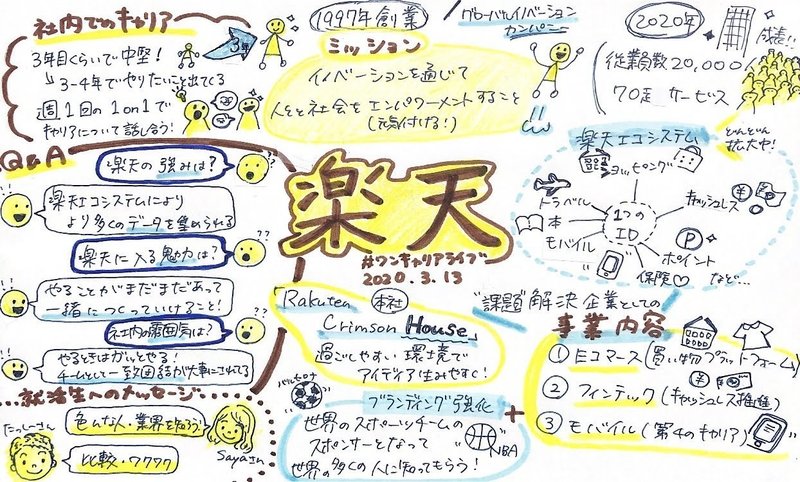 社内でのキャリア
3年目くらいで中堅!
3-4年でやりたいこと出てくる
週1回の1on1で
キャリアについて話しあう!
3年
1997年創業
グローバルイノベーション
カンパニー
ミッション
イノベーションを通じて
人々と社会をエンパワーメントすること
(元気付ける!)
2020年
成長!!
従業員数20,000人
70超 サービス
楽天エコシステム
どんどん
拡大中!
ショッピング
トラベル
キャッシュレス
本
1つの
ID
モバイル
P
ポイント
保険♡
など…
Q&A
楽天の強みは?
楽天エコシステムにより
より多くのデータを集められる
楽天に入る魅力は?
やることがまだまだあって
一緒につくっていけること!
社内の雰囲気は?
やるときはがんとやる!
チームとして一致団結が大事にされてる
楽天
#ワンキャリアライブ
2020.3.13
Rakuten 本社
Crimson House
過ごしやすい環境で
アイディア生みやすく!
"課題"解決企業としての
事業内容
① Eコマース(買い物プラットフォーム)
② フィンテック(キャッシュレス推進)
③ モバイル(第4のキャリア)
就活生へのメッセージ
色んな人・業界を知ろう!
Sayaさん
たっしーさん
比較・ワクワク
ブランディング強化
バルセロナ
世界のスポーツチームの
スポンサーとなって
世界の多くの人に知ってもらう!
NBA